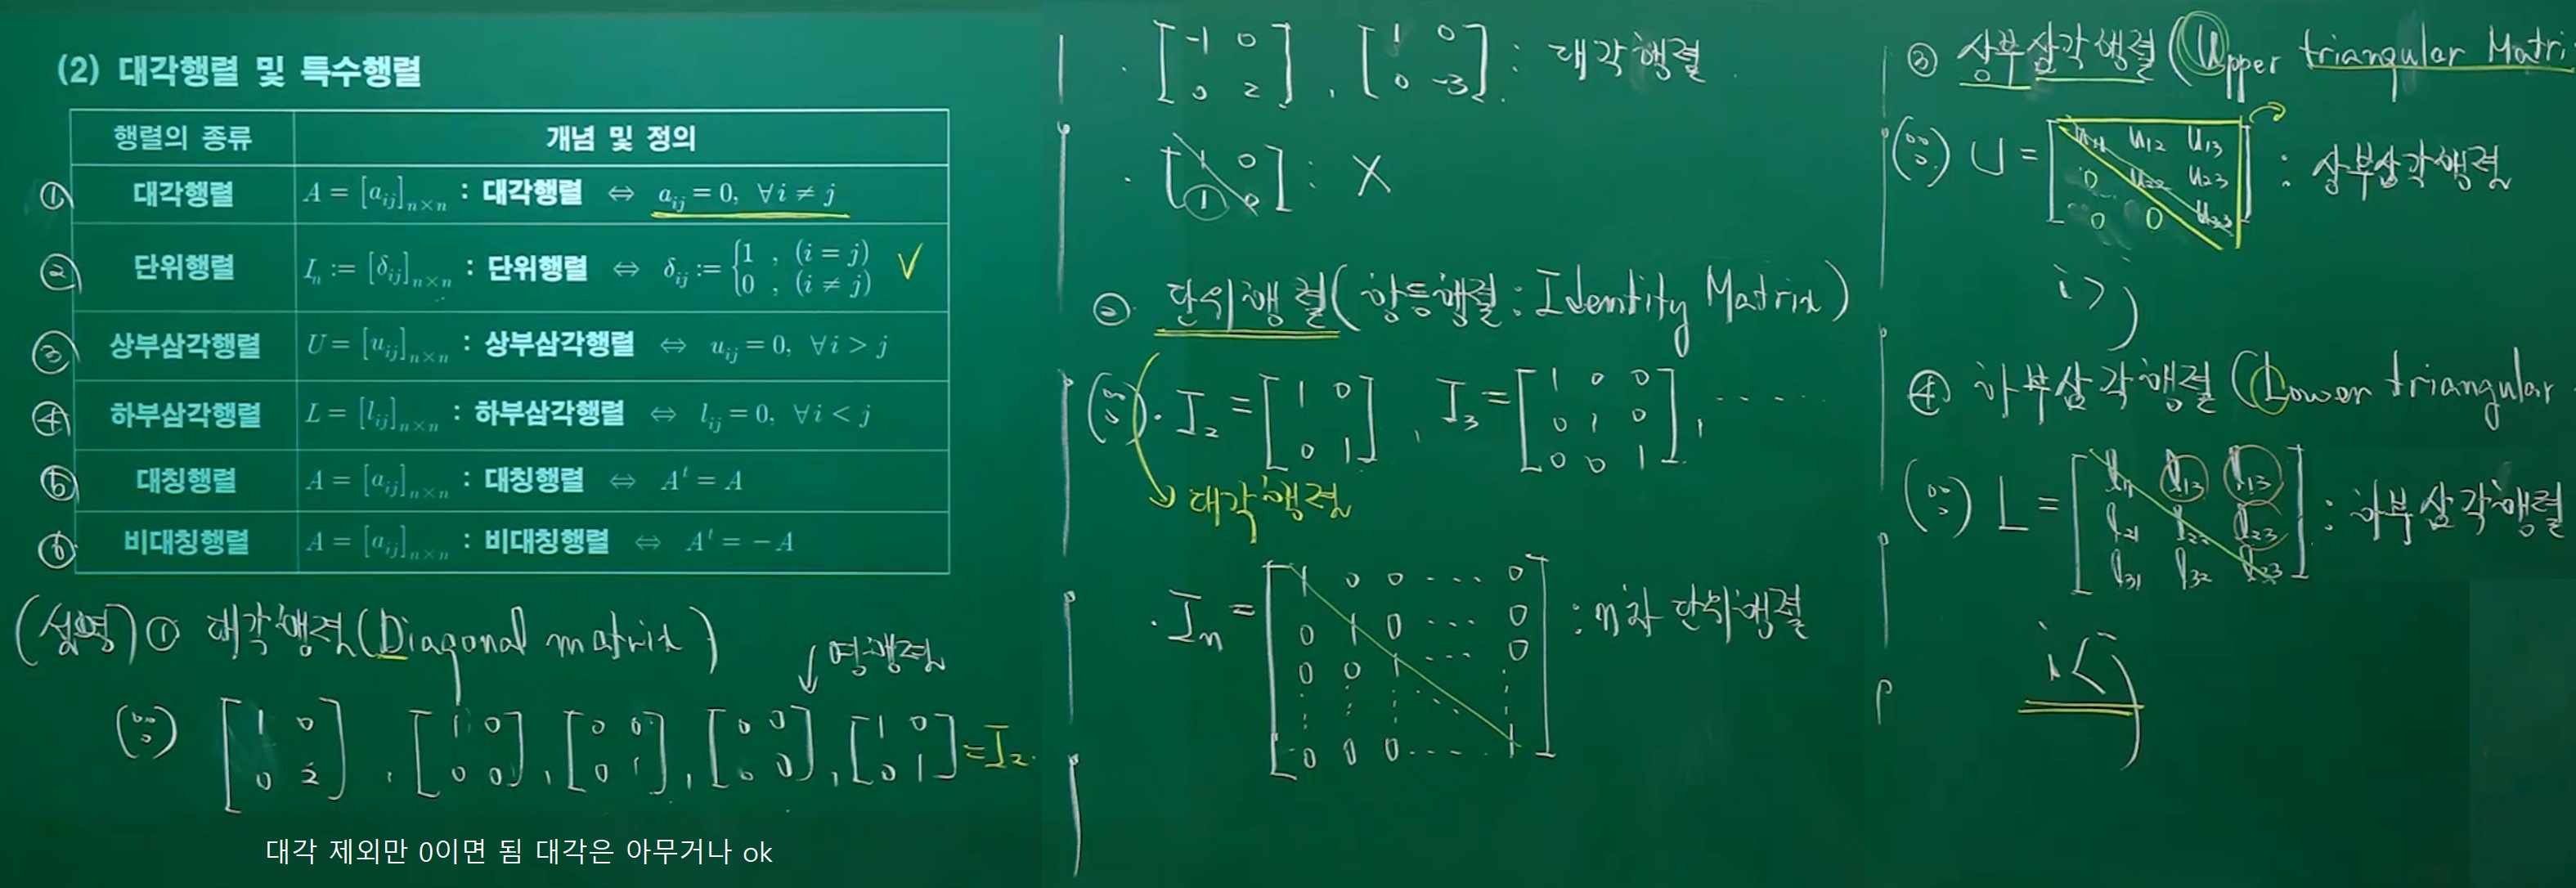 (2) 대각행렬 및 특수행렬
행렬의 종류 개념 및 정의
① 대각행렬 A = [a_ij]_n×n : 대각행렬 ⇔ a_ij = 0, ∀i ≠ j
② 단위행렬 I_n := [δ_ij]_n×n : 단위행렬 ⇔ δ_ij := {1 , (i = j) 0 , (i ≠ j) ✓
③ 상부삼각행렬 U = [u_ij]_n×n : 상부삼각행렬 ⇔ u_ij = 0, ∀i > j
④ 하부삼각행렬 L = [l_ij]_n×n : 하부삼각행렬 ⇔ l_ij = 0, ∀i < j
⑤ 대칭행렬 A = [a_ij]_n×n : 대칭행렬 ⇔ A^t = A
⑥ 비대칭행렬 A = [a_ij]_n×n : 비대칭행렬 ⇔ A^t = −A
(설명) ① 대각행렬(Diagonal matrix)
↓ 영행렬
(예) [1 0; 0 2], [1 0; 0 0], [0 0; 0 1], [0 0; 0 0], [1 0; 0 1] = I_2.
대각 제외만 0이면 됨 대각은 아무거나 ok
· [-1 0; 0 2], [1 0; 0 -3] : 대각행렬
· [1 0; 1 0] : X
② 단위행렬(항등행렬 : Identity Matrix)
· I_2 = [1 0; 0 1], I_3 = [1 0 0; 0 1 0; 0 0 1], ·····
대각행렬
· I_n = [1 0 0 ··· 0; 0 1 0 ··· 0; 0 0 1 ··· 0; ⋮ ⋮ ⋮ ⋱ ⋮; 0 0 0 ··· 1] : n차 단위행렬
③ 상부삼각행렬(Upper triangular Matri
U = [u_11 u_12 u_13; 0 u_22 u_23; 0 0 u_33] : 상부삼각행렬
i > j
④ 하부삼각행렬(Lower triangular
L = [l_11 l_13 l_13; l_21 l_22 l_23; l_31 l_32 l_23] : 하부삼각행렬
i < j